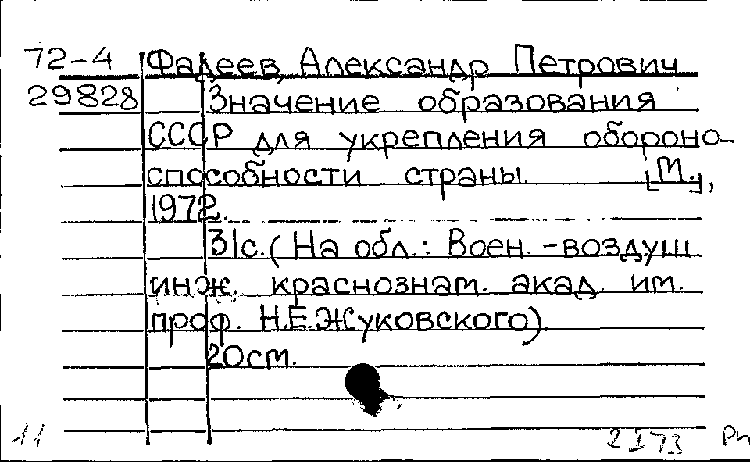 72-4 Фадеев, Александр Петрович
29828 Значение образования
СССР для укрепления обороно-
способности страны. [М.],
1972.
31с. (На обл.: Воен.-воздуш.
инж. краснознам. акад. им.
проф. Н.Е.Жуковского).
20см.
11 2 173